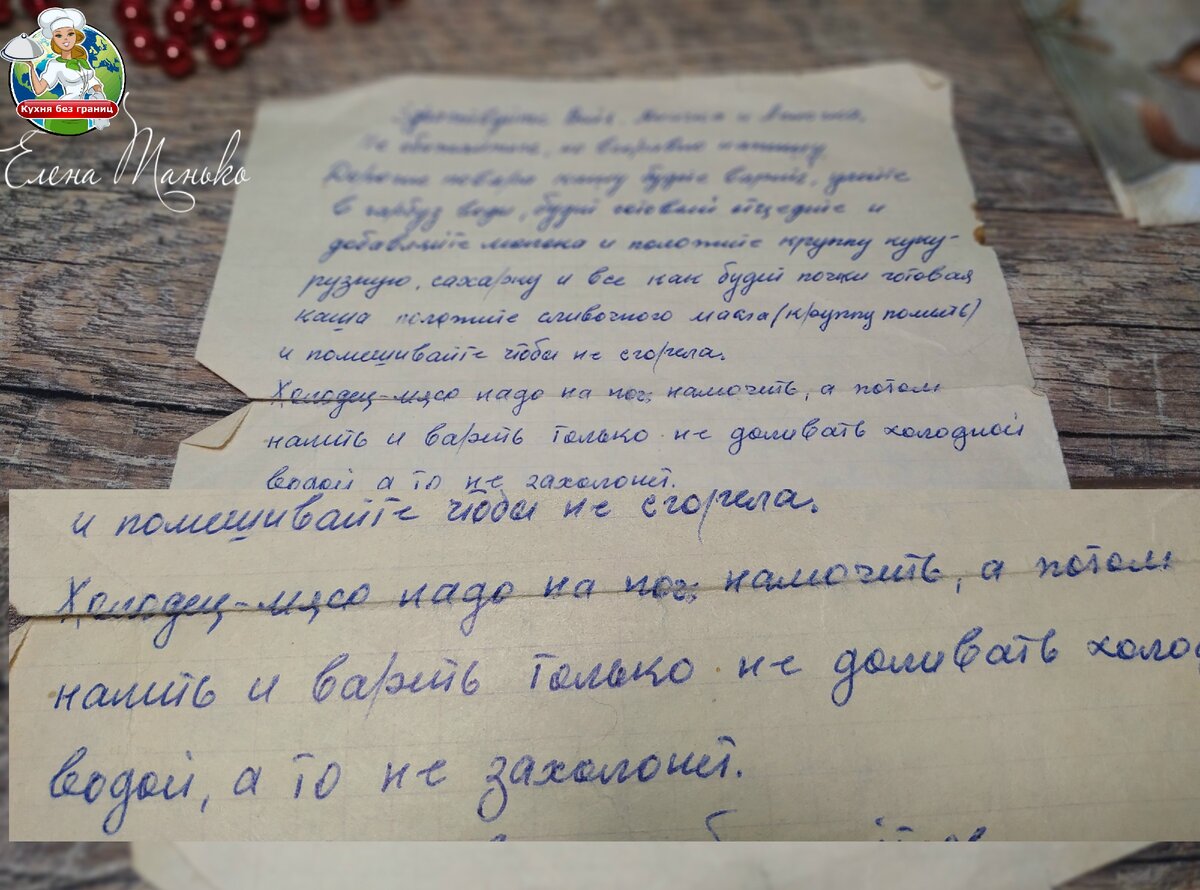 Кухня без границ
Елена Танько
Здравствуйте
Не обижайтесь, но напишу
Дорогие повара кашу будете варить,
в гарбуз воды, будет готовый отцедите и
добавляйте молока и положите круппу куку-
рузную, сахарку и все как будет почти готовая
каша положите сливочного масла (круппу помыть)
и помешивайте чтобы не сгорела.
Холодец-мясо надо на ноч намочить, а потом
налить и варить только не доливать холодной
водой а то не захолонет.
и помешивайте чтобы не сгорела.
Холодец-мясо надо на ноч намочить, а потом
налить и варить только не доливать холо
водой, а то не захолонет.